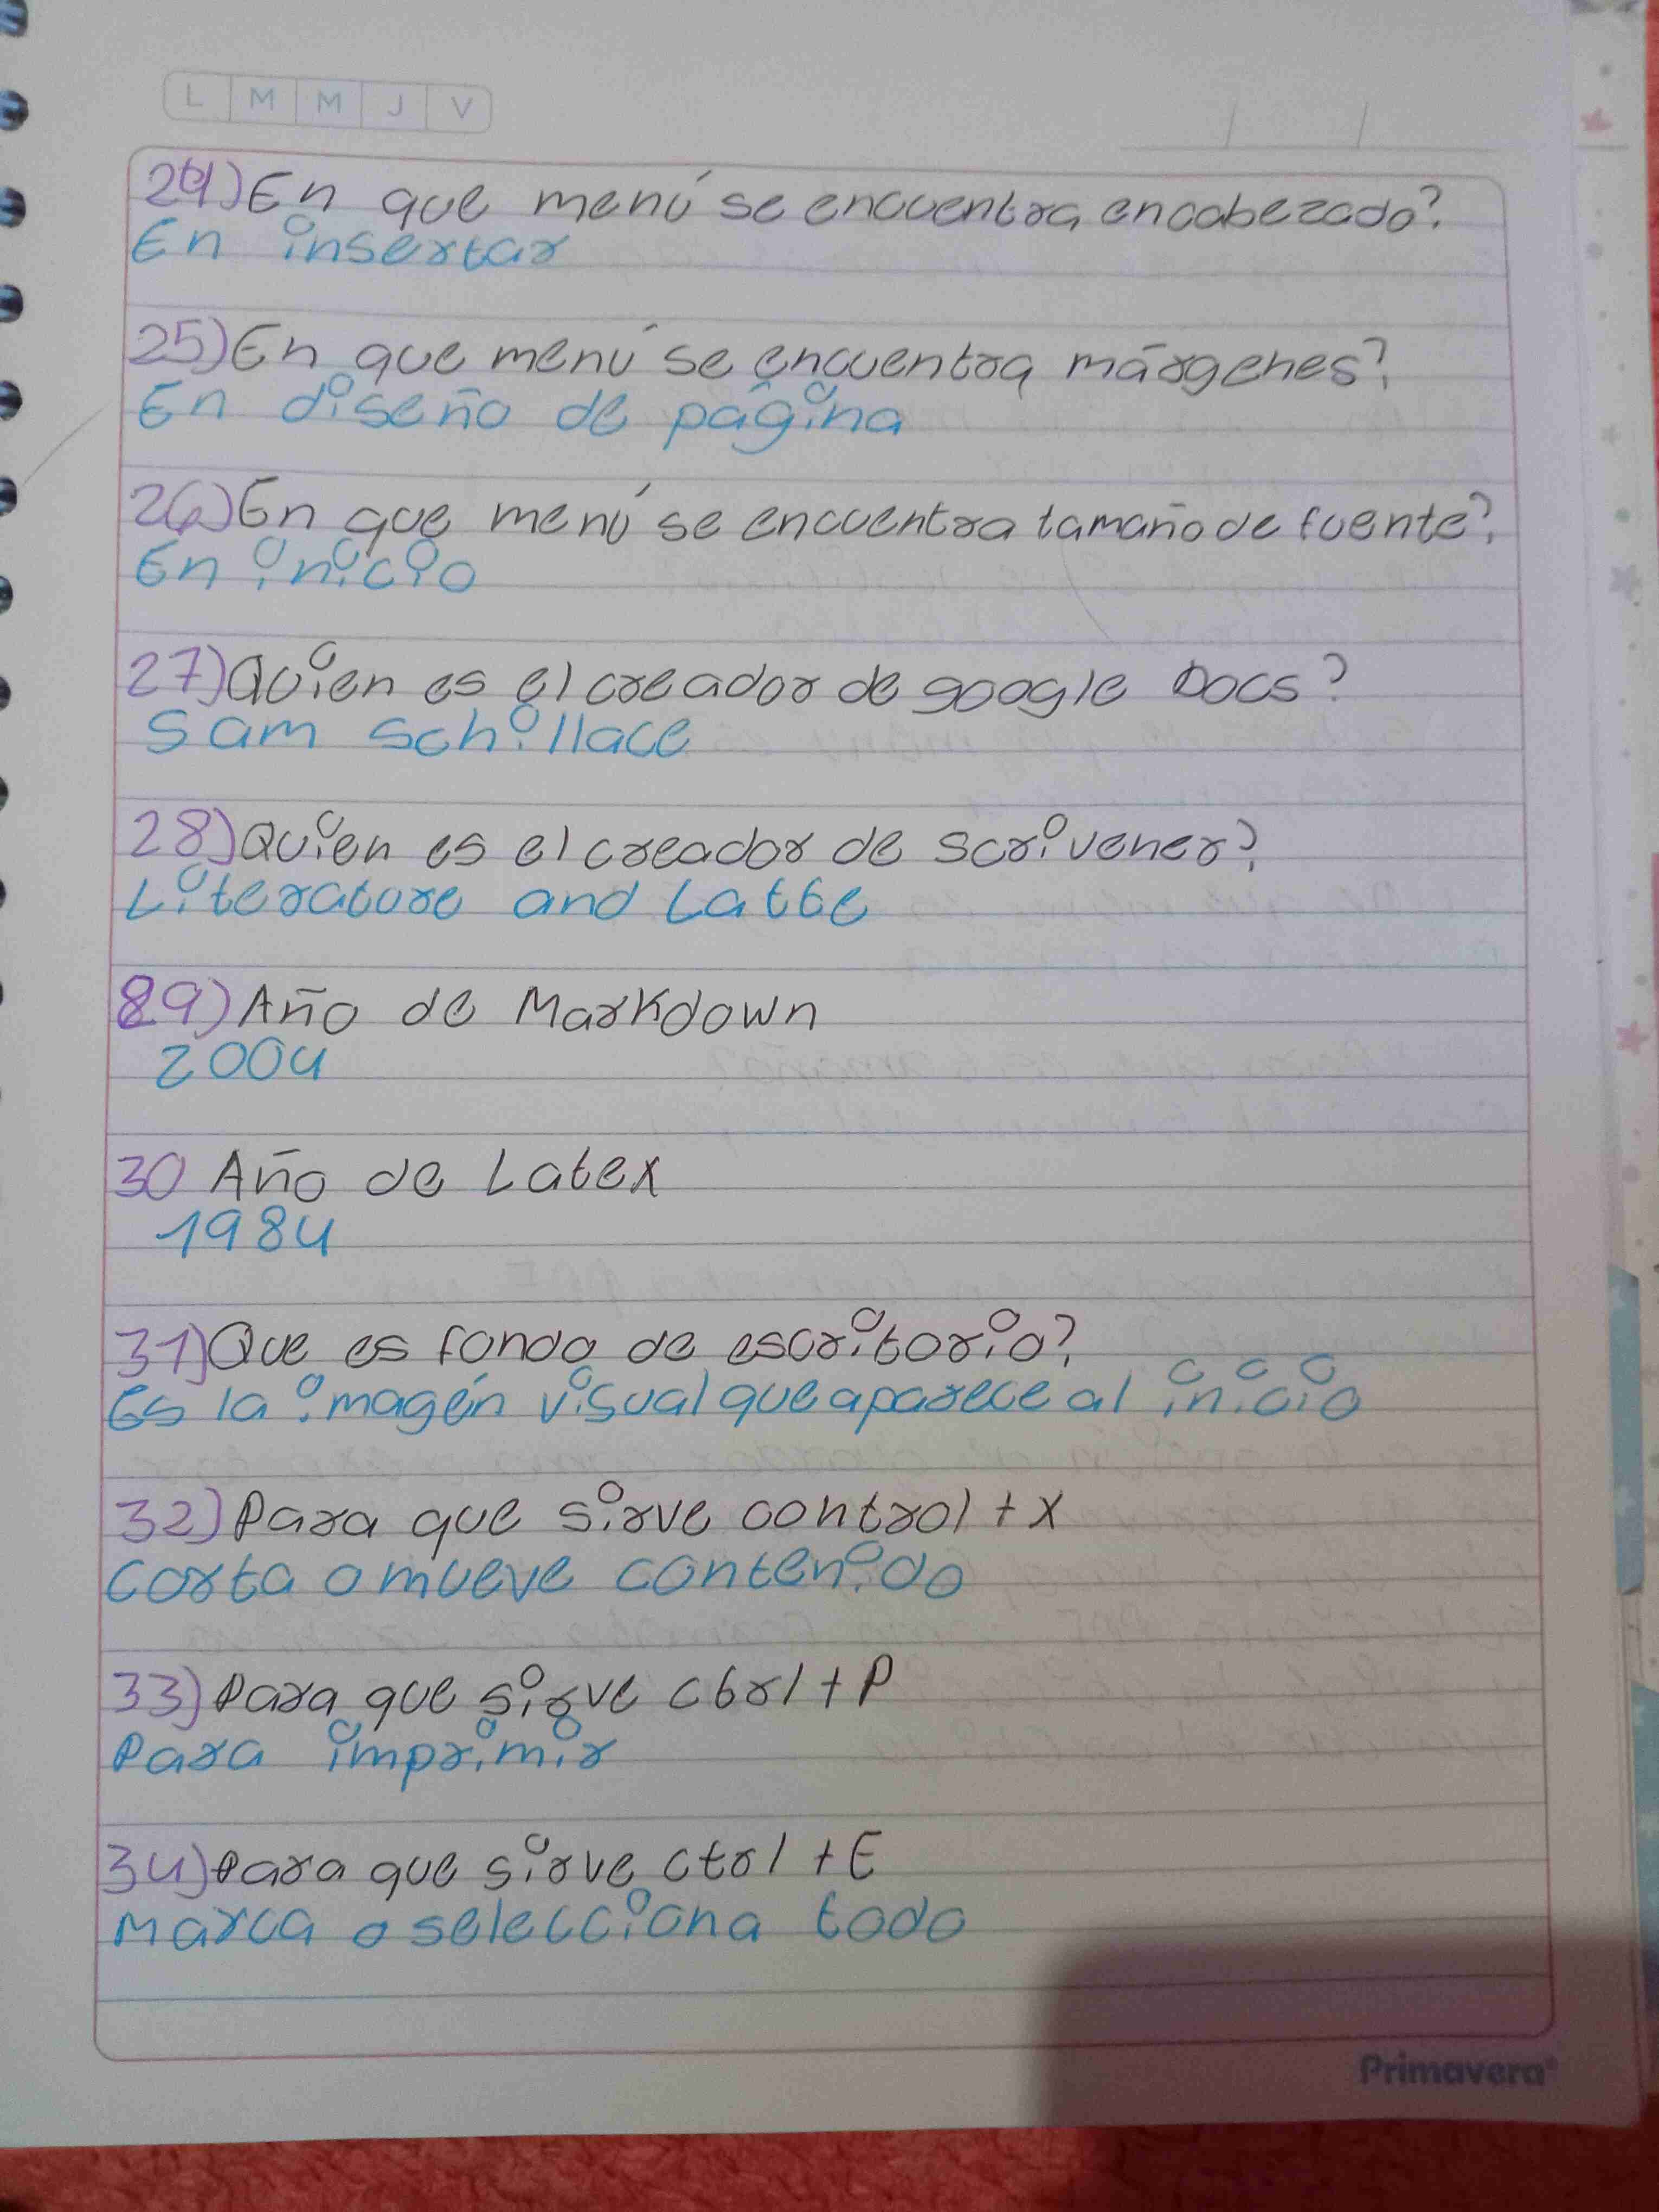 L M M J V
24) En que menú se encuentra encabezado?
En insertar
25) En que menú se encuentra márgenes?
En diseño de página
26) En que menú se encuentra tamaño de fuente?
En inicio
27) Quien es el creador de google Docs?
Sam Schillace
28) Quien es el creador de scrivener?
Literature and Latte
29) Año de Markdown
2004
30 Año de Latex
1984
31) Que es fondo de escritorio?
Es la imagén visual que aparece al inicio
32) Para que sirve control + X
Corta o mueve contenido
33) Para que sirve ctrl + P
Para imprimir
34) Para que sirve ctrl + E
Marca o selecciona todo
Primavera